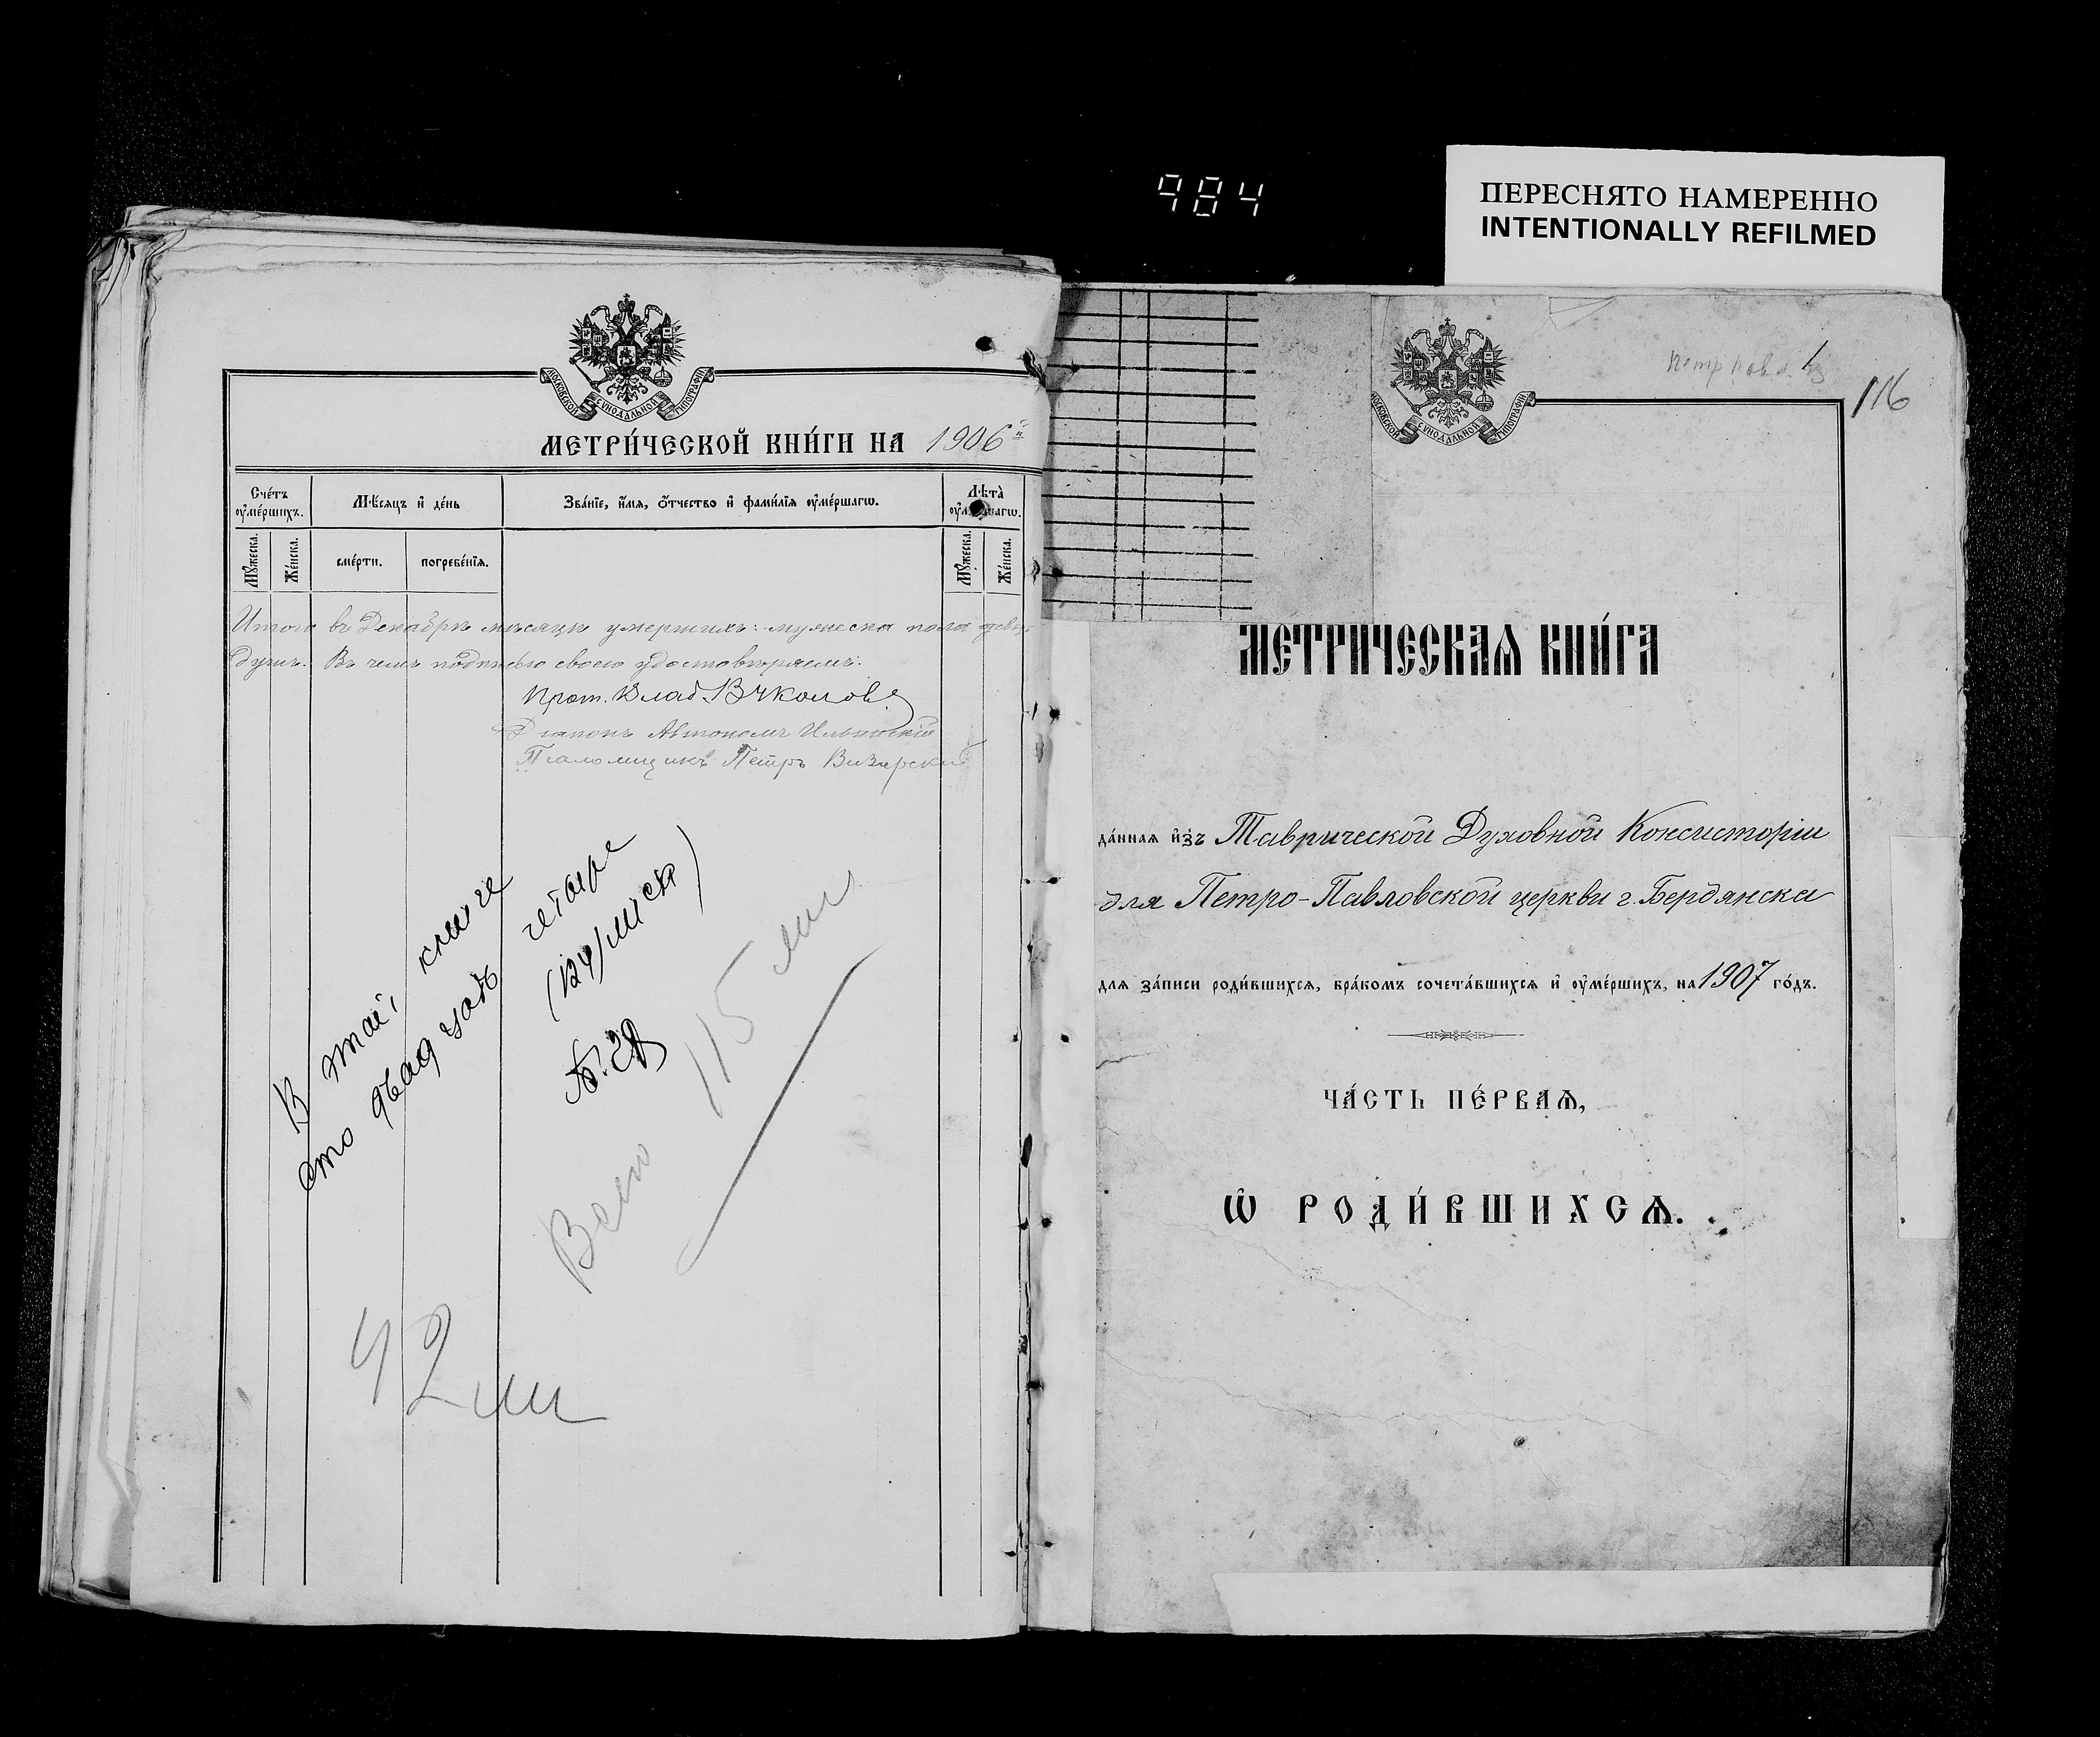 984
ПЕРЕСНЯТО НАМЕРЕННО
INTENTIONALLY REFILMED
МОСКОВСКОЙ СѴНОДАЛЬНОЙ ТИПОГРАФІИ
МЕТРИ́ЧЕСКОЙ КНИ́ГИ НА 1906й
Сче́тъ оу҆ме́ршихъ.
Мѣ́сяцъ и҆ де́нь
Зва́нїе, и҆́мя, ѻ҆́тчество и҆ фами́лїя оу҆ме́ршагѡ.
Лѣта̀
Мꙋ́жеска.
Же́нска.
сме́рти.
погребе́нїя.
Мꙋ́жеска.
Же́нска.
Итого въ Декабрѣ мѣсяцѣ умершихъ: мужеска пола
душъ. Въ чемъ подписью своею удостовѣряемъ:
Прот. Влад.
Діаконъ Автономъ Ильинскій
Псаломщикъ Петръ
В этой книге
сто двадцать четыре
(124) листа
Всего 115 лис
42 лис
МОСКОВСКОЙ СѴНОДАЛЬНОЙ ТИПОГРАФІИ
116
МЕТРИЧЕСКАѦ КНИ́ГА
да́нная и҆зъ Таврической Духовной Консисторіи
для Петро-Павловской церкви г. Бердянска
для за́писи роди́вшихся, бра́комъ сочета́вшихся и҆ оу҆ме́ршихъ, на 1907 го́дъ.
ЧА́СТЬ ПЕ́РВАѦ,
Ѡ҆ РОДИ́ВШИХСѦ.